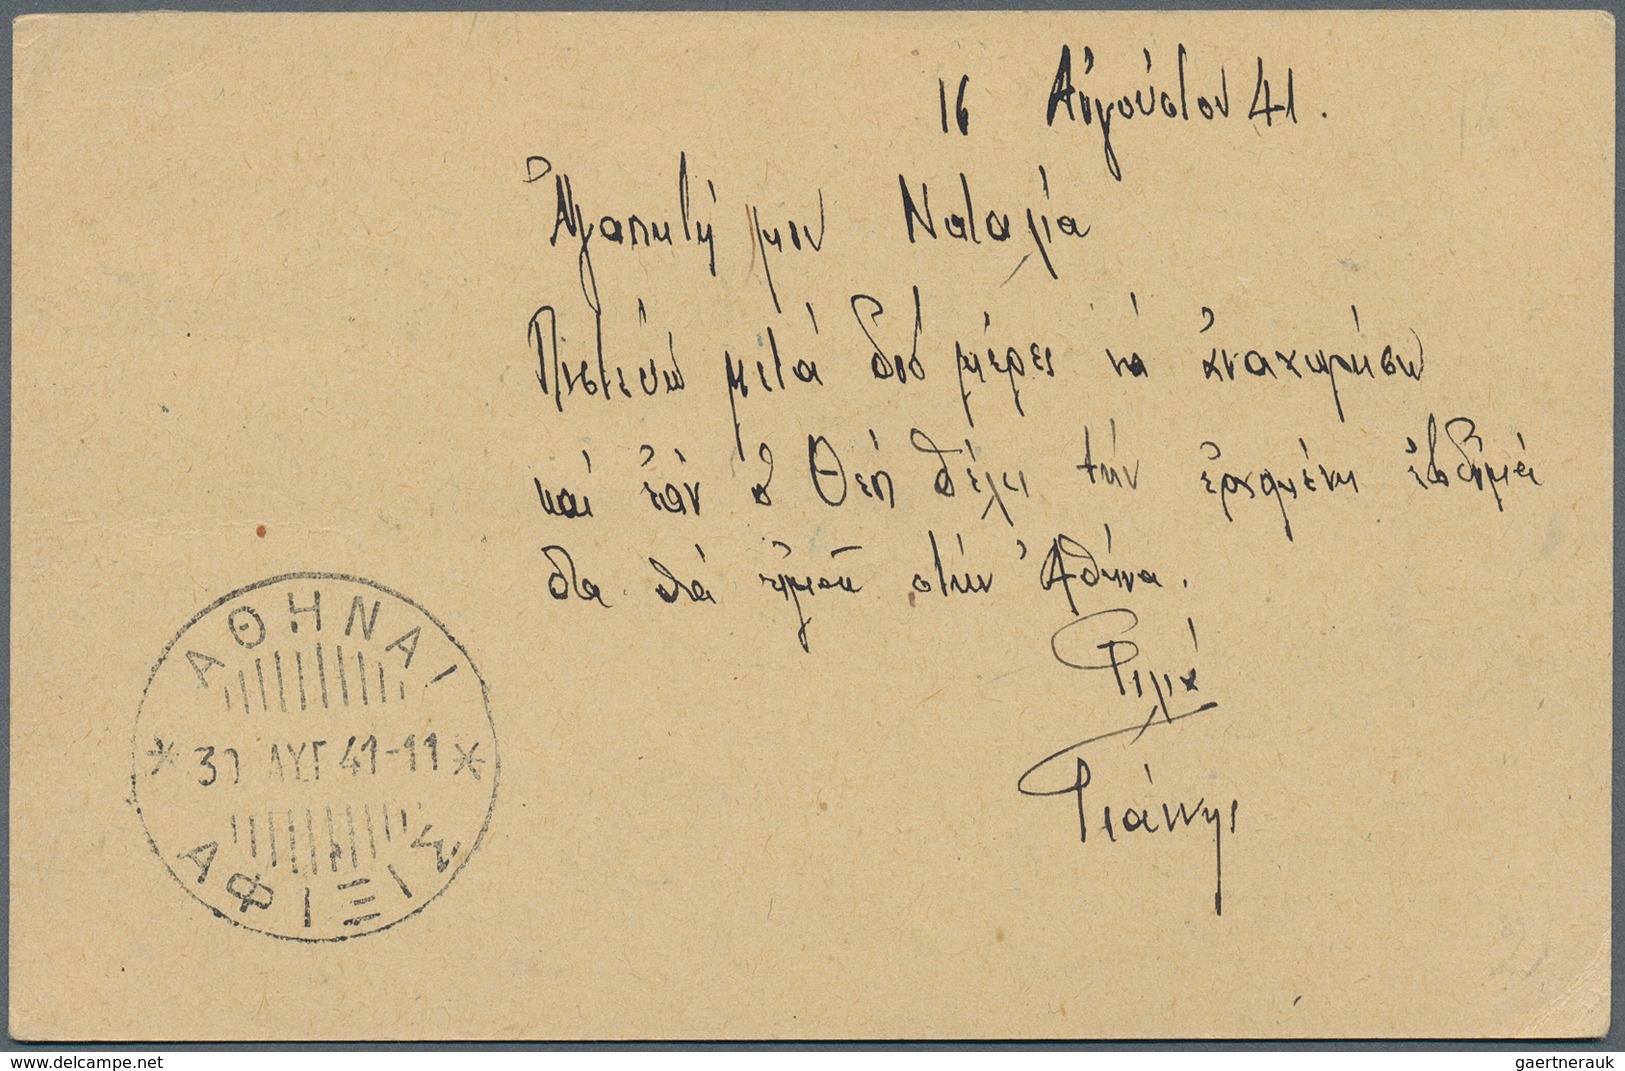 16 Αὐγούστου 41.
Ἀγαπητή μου Ναταλία
Πιστεύω μετά δυό μέρες νά ἀναχωρήσω
καί ἐάν ὁ Θεός θέλει τήν ἐρχομένη ἑβδομά
δα θά εἶμαι στήν Ἀθήνα.
Φιλιά
Γιάννης
ΑΘΗΝΑΙ
* 31 ΑΥΓ 41-11 *
ΑΦΙΞΙΣ
www.delcampe.net
gaertnerauk